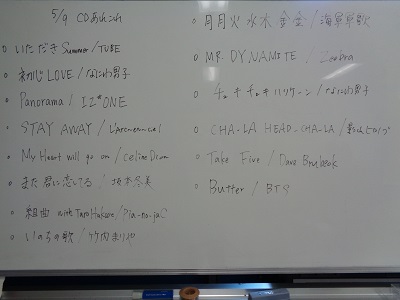 5/9 CDあれこれ
いただきSummer / TUBE
初心LOVE / なにわ男子
Panorama / IZ*ONE
STAY AWAY / L'Arc~en~Ciel
My Heart will go on / Celine Dion
また君に恋してる / 坂本冬美
組曲 with Taro Hakase / Pia-no-jaC
いのちの歌 / 竹内まりや
月月火水木金金 / 海軍軍歌
MR. DYNAMITE / Zeebra
チュキチュキハリケーン / なにわ男子
CHA-LA HEAD-CHA-LA / 影山ヒロノブ
Take Five / Dave Brubeck
Butter / BTS